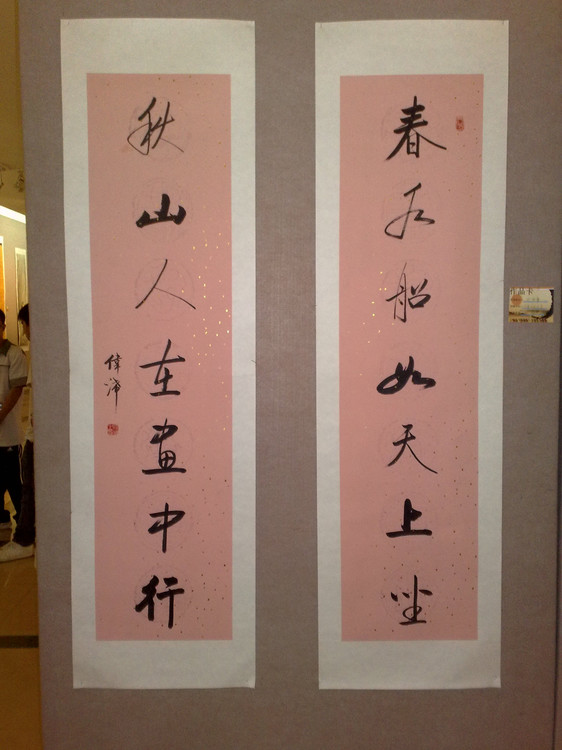 春水船如天上坐
秋山人在畫中行
偉沛